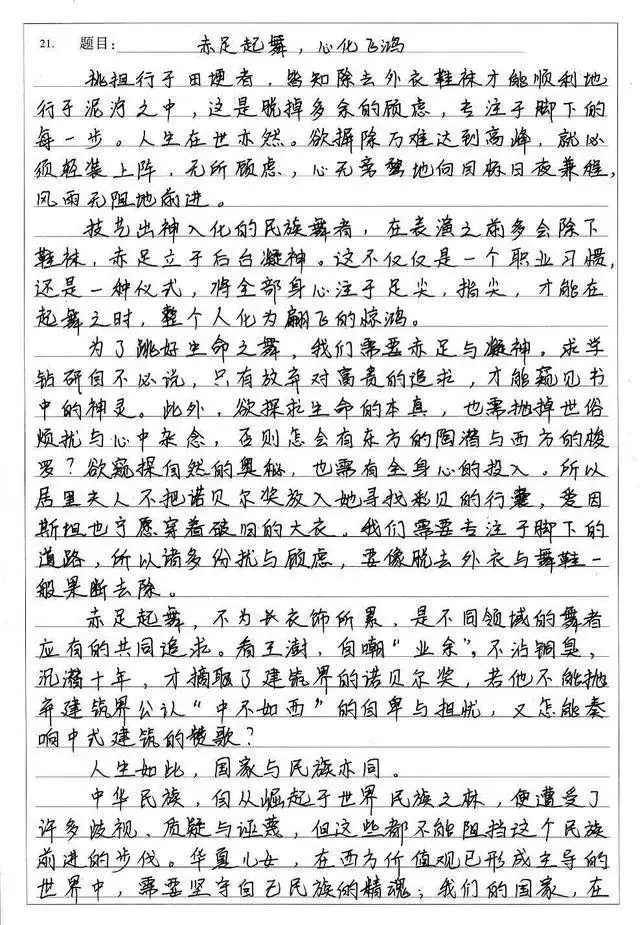 21. 题目: 赤足起舞，心化飞鸿
挑担行于田埂者，皆知除去外衣鞋袜才能顺利地
行于泥泞之中，这是脱掉多余的顾虑，专注于脚下的
每一步。人生在世亦然。欲摒除万难达到高峰，就必
须轻装上阵，无所顾虑，心无旁骛地向目标日夜兼程，
风雨无阻地前进。
技艺出神入化的民族舞者，在表演之前多会除下
鞋袜，赤足立于后台凝神。这不仅仅是一个职业习惯，
还是一种仪式，将全部身心注于足尖，指尖，才能在
起舞之时，整个人化为翩飞的惊鸿。
为了跳好生命之舞，我们需要赤足与凝神。求学
钻研自不必说，只有放弃对富贵的追求，才能窥见书
中的神灵。此外，欲探求生命的本真，也需抛掉世俗
烦扰与心中杂念，否则怎会有东方的陶潜与西方的梭
罗？欲窥探自然的奥秘，也需有全身心的投入。所以
居里夫人不把诺贝尔奖放入她寻找彩贝的行囊，爱因
斯坦也宁愿穿着破旧的大衣。我们需要专注于脚下的
道路，所以诸多纷扰与顾虑，要像脱去外衣与舞鞋一
般果断去除。
赤足起舞，不为长衣饰所累，是不同领域的舞者
应有的共同追求。看王澍，自嘲“业余”，不沾铜臭，
沉潜十年，才摘取了建筑界的诺贝尔奖，若他不能抛
弃建筑界公认“中不如西”的自卑与担忧，又怎能奏
响中式建筑的凌歌？
人生如此，国家与民族亦同。
中华民族，自从崛起于世界民族之林，便遭受了
许多歧视、质疑与诬蔑，但这些都不能阻挡这个民族
前进的步伐。华夏儿女，在西方价值观已形成主导的
世界中，需要坚守自己民族的精魂；我们的国家，在